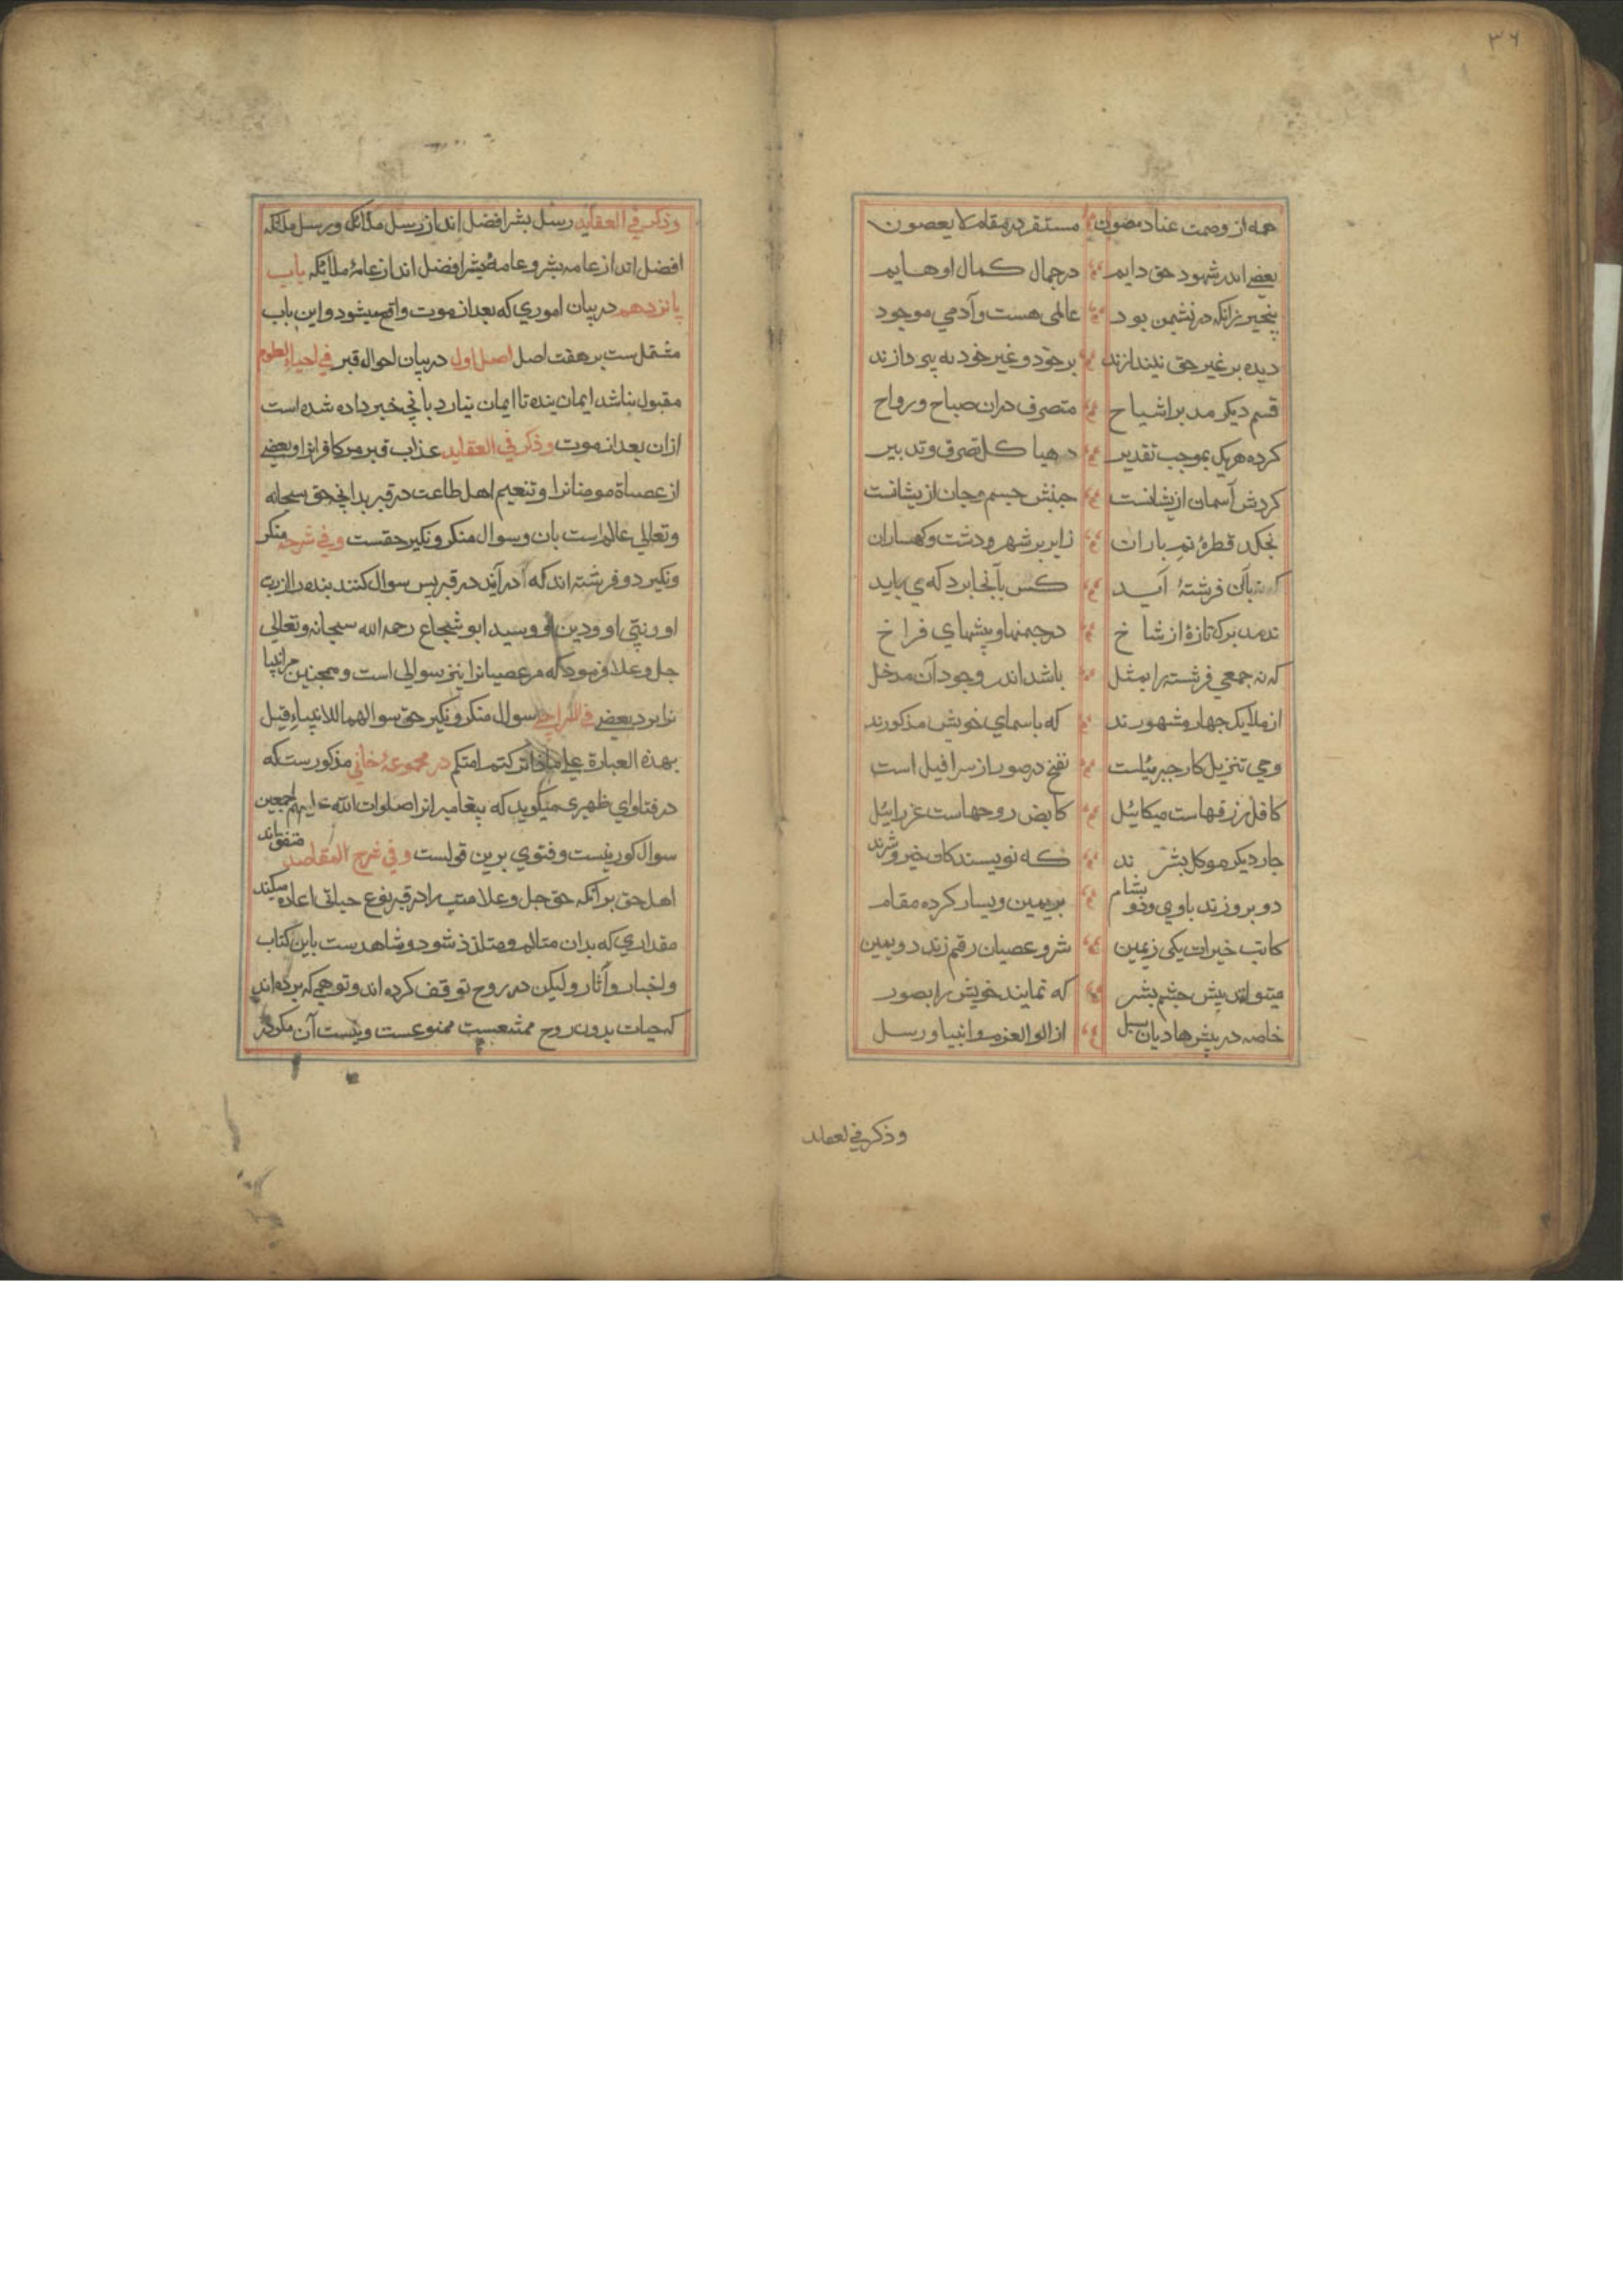 ۳۶
همه از وصمت عناد مصون مستقر در مقام لا یعصون
بعضی اندر شهود حق دایم در جمال کمال او هایم
عالمی هست و آدمی موجود
دیده بر غیر حق نیندازند بر خود و غیر خود نه پردازند
قسم دیکر مدبر اشباح متصرف دران صباح و رواح
کرده هر یک بموجب تقدیر کل تصرف و تدبیر
کردش آسمان ازیشانست جنبش جسم و جان ازیشانست
نجکد قطرهٔ نم باران ز ابر بر شهر و دشت و کهساران
که نه بآن فرشتهٔ آید کس بآنجا برد که می باید
ندمد برک تازهٔ از شاخ در جمنها و پیشهای فراخ
که نه جمعی فرشته را بمثل باشد اندر وجود آن مدخل
از ملایک جهار مشهورند که باسمای خویش مذکورند
وحی تنزیل کار جبرئیلست نفخ در صور از سرافیل است
کافل رزقهاست میکائیل کابض روحهاست عزرائیل
جار دیکر موکل بشرند که نویسندکان خیر و شرند
دو بروزند باوی و دو بشام بر یمین و یسار کرده مقام
کاتب خیرات یکی ز یمین شر و عصیان رقم زند دویمین
میتوانند پیش جشم بشر که نمایند خویش را بصور
خاصه در پیش هادیان سبل از الوالعزم و انبیا و رسل
وذکر فی العقاید
وذکر فی العقاید رسل بشر افضل اند از رسل ملائکه و رسل ملائکه
افضل اند از عامه بشر و عامهٔ بشر افضل اند از عامهٔ ملائکه باب
پانزدهم در بیان اموری که بعد از موت واقع میشود و این باب
مشتمل ست بر هفت اصل اصل اول در بیان احوال قبر فی احیاء العلوم
مقبول نباشد ایمان بنده تا ایمان نیارد بانچه خبر داده شده است
ازان بعد از موت وذکر فی العقاید عذاب قبر مر کافرانرا و بعضی
از عصاة مومنانرا و تنعیم اهل طاعت در قبر بدانچه حق سبحانه
وتعالی عالم است بان و سوال منکر و نکیر حقست وفی شرحه منکر
ونکیر دو فرشته اند که در آیند در قبر پس سوال کنند بنده را از رب
او و نبی او و دین او و سید ابو شجاع رحمه الله سبحانه وتعالی
جل وعلا فرمود که مر صبیانرا نیز سوالی است و همچنین مر انبیا
نزد بعضی سوال منکر و نکیر حق سوالهما للانبیاء قیل
بهذه العبارة علی ماذا ترکتم امتکم در مجموعهٔ خانی مذکور ست که
در فتاوای ظهیری میکوید که پیغامبرانرا صلوات الله علیهم اجمعین
سوال کور نیست و فتوی برین قولست وفی شرح المقاصد متفق اند
اهل حق بر آنکه حق جل وعلا میت را در قبر نوع حیاتی اعاده میکند
مقداری که بدان متالم و متلذذ شود و شاهدست باین کتاب
واخبار و آثار ولیکن در روح توقف کرده اند و توهمی که برده اند
که حیات بدون روح ممتنعست ممنوعست و نیست آن مکر در